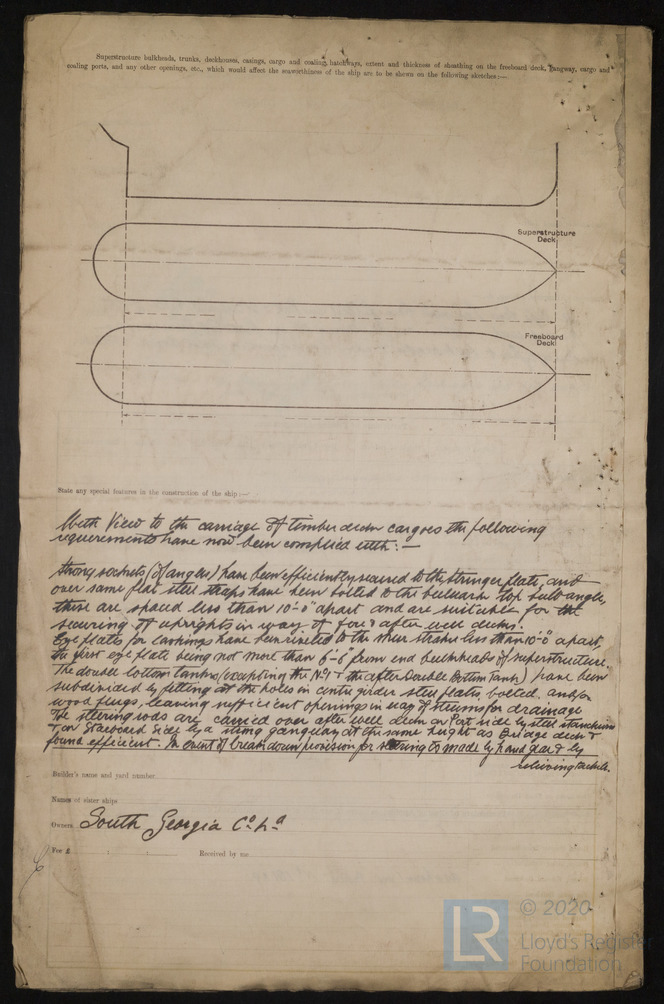 Superstructure bulkheads, trunks, deckhouses, casings, cargo and coaling hatchways, extent and thickness of sheathing on the freeboard deck, gangway, cargo and
coaling ports, and any other openings, etc., which would affect the seaworthiness of the ship are to be shown on the following sketches:—
Superstructure
Deck
Freeboard
Deck
State any special features in the construction of the ship:—
With View to the carriage of timber deck cargoes the following
requirements have now been complied with:—
Strong sockets (of angles) have been efficiently secured to the stringer plate, and
over same flat steel straps have been bolted to the bulwark top bulb angle,
these are spaced less than 10'-0" apart and are suitable for the
securing of uprights in way of fore & after well decks.
Eye plates for lashings have been riveted to the sheer strake less than 10'-0" apart,
the first eye plate being not more than 6'-6" from end bulkheads of superstructure.
The double bottom tanks (excepting the No 1 & the after Double Bottom Tank) have been
subdivided by fitting at the holes in centre girder steel plates, bolted, and/or
wood plugs, leaving sufficient openings in way of for drainage
The steering rods are carried over after well deck on Port side by steel stanchions
& on Starboard Side by a strong gangway at the same height as Bridge deck &
found efficient. In event of breakdown provision for steering is made by hand gear & by
relieving tackle.
Builder's name and yard number
Names of sister ships
Owners South Georgia Co Ld
Fee £ : :
Received by me
© 2020
LR
Lloyd's Register
Foundation